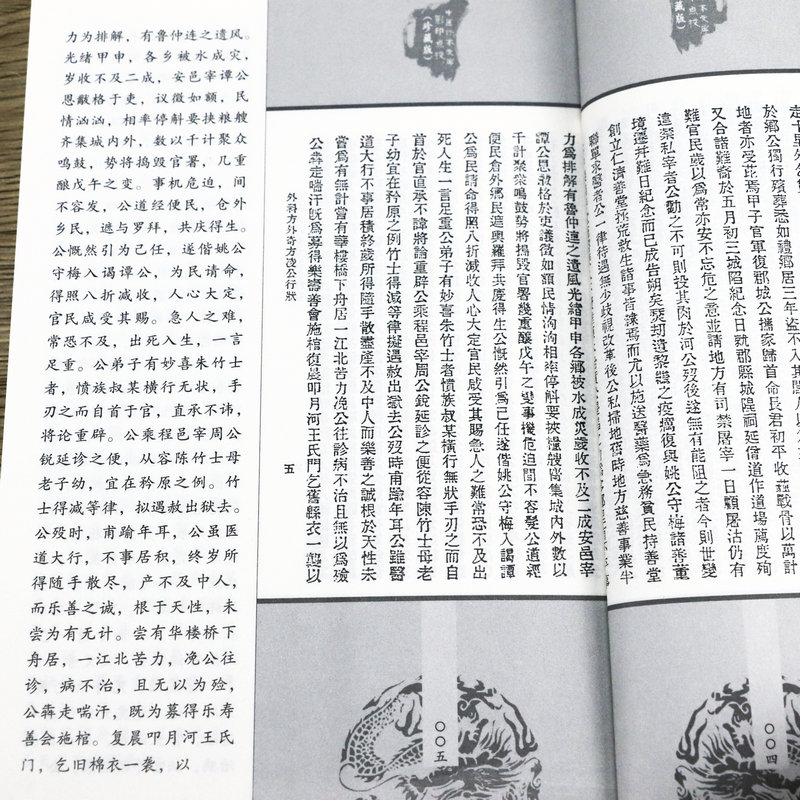 力为排解，有鲁仲连之遗风。
光绪甲申，各乡被水成灾，
岁收不及二成，安邑宰谭公
恩黻格于吏，议微如额，民
情汹汹，相率停斛要挟粮艘
齐集城内外，数以千计聚众
鸣鼓，势将捣毁官署，几重
酿戊午之变。事机危迫，间
不容发，公道经便民，仓外
乡民，遮与罗拜，共庆得生。
公慨然引为己任，遂偕姚公
守梅入谒谭公，为民请命，
得照八折减收，人心大定，
官民咸受其赐。急人之难，
常恐不及，出死入生，一言
足重。公弟子有妙喜朱竹士
者，愤族叔某横行无状，手
刃之而自首于官，直承不讳，
将论重辟。公乘程邑宰周公
锐延诊之便，从容陈竹士母
老子幼，宜在矜原之例。竹
士得减等律，拟遇赦出狱去。
公殁时，甫踰年耳，公虽医
道大行，不事居积，终岁所
得随手散尽，产不及中人，
而乐善之诚，根于天性，未
尝为有无计。尝有华楼桥下
舟居，一江北苦力，浼公往
诊，病不治，且无以为殓，
公犇走喘汗，既为募得乐寿
善会施棺。复晨叩月河王氏
门，乞旧棉衣一袭，以
力爲排解有魯仲連之遺風光緒甲申各鄉被水成災歲收不及二成安邑宰
譚公恩黻格於吏議徵如額民情洶洶相率停斛要挾糧艘齊集城內外數以
千計聚衆鳴鼓勢將搗毀官署幾重釀戊午之變事機危迫間不容髮公道經
便民倉外鄉民遮與羅拜共慶得生公慨然引爲己任遂偕姚公守梅入謁譚
公爲民請命得照八折減收人心大定官民咸受其賜急人之難常恐不及出
死入生一言足重公弟子有妙喜朱竹士者憤族叔某橫行無狀手刃之而自
首於官直承不諱將論重辟公乘程邑宰周公銳延診之便從容陳竹士母老
子幼宜在矜原之例竹士得減等律擬遇赦出獄去公歿時甫踰年耳公雖醫
道大行不事居積終歲所得隨手散盡產不及中人而樂善之誠根於天性未
嘗爲有無計嘗有華樓橋下舟居一江北苦力浼公往診病不治且無以爲殮
公犇走喘汗旣爲募得樂壽善會施棺復晨叩月河王氏門乞舊緜衣一襲以
外科方外奇方凌公行狀
五
〇〇五
（珍藏版）
於鄉公獨行殯葬悉如禮鄉居三年盜不入其閭
地者亦受庇焉甲子官軍復郡城公攜家歸首命長君初平收瘞戰骨以萬計
又合諸難裔於五月初三城陷紀念日就郡縣城隍祠延僧道作道場薦度殉
難官民歲以爲常亦安不忘危之意並請地方有司禁屠宰一日顧屠沽仍有
違禁私宰者公勸之不可則投其肉於河公歿後遂無有能阻之者今則世變
境遷并難日紀念而已成告朔矣
創立仁濟善堂
公一律待遇無少歧視改革後公私掃地舊時地方慈善事業半
〇〇四